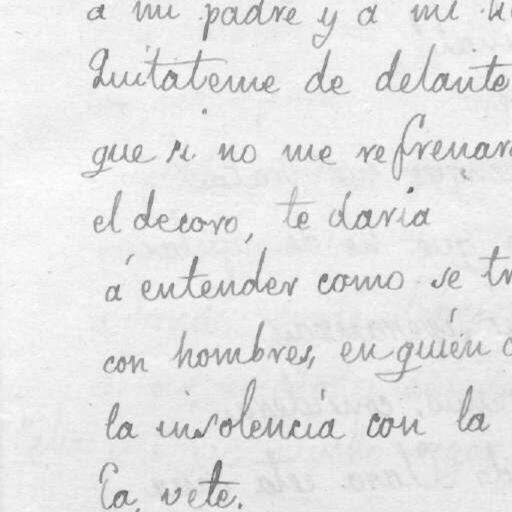 a mi padre y a mi
Quitateme de delante
que si no me refrenar
el decoro, te daria
á entender como se tr
con hombres, en quién
la insolencia con la
Ea, vete.